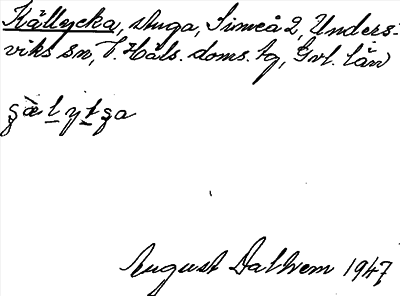 Källycka, stuga, Simeå 2, Unders-
viks sn, V. Häls. doms. tg, Gvl. län
August Dalhem 1947